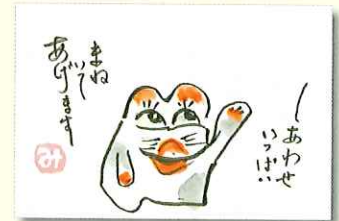 しあわせ
いっぱい
まねいて
あげます
み